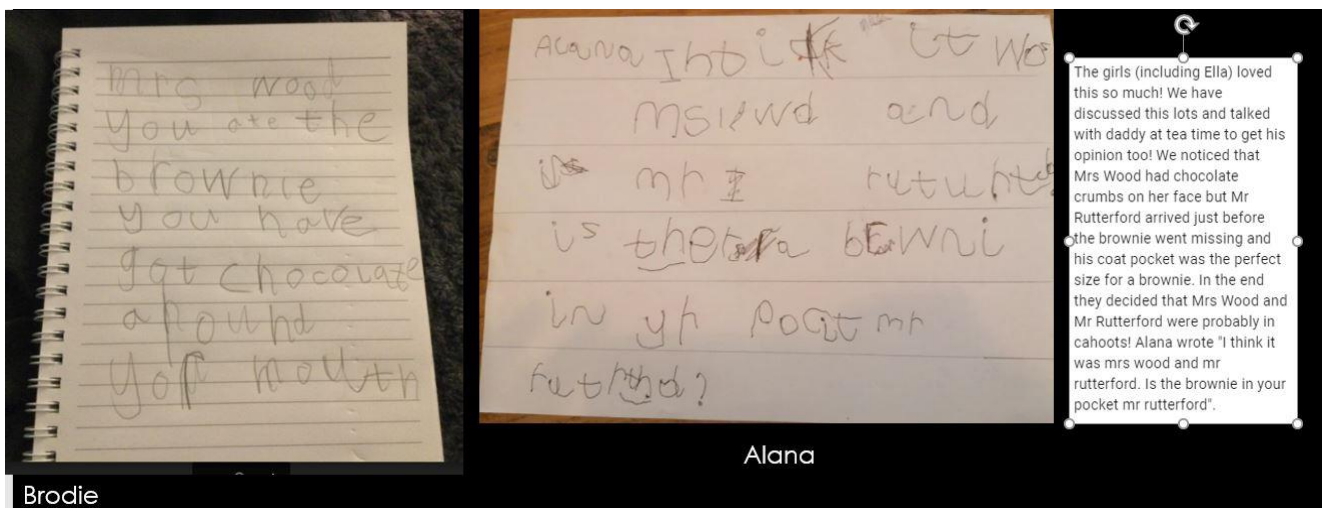 Mrs wood
you ate the
brownie
you have
got chocolate
around
yor mouth
Brodie
Alana I think it wos
and
is mr
is
in yr pocit mr
Alana
The girls (including Ella) loved
this so much! We have
discussed this lots and talked
with daddy at tea time to get his
opinion too! We noticed that
Mrs Wood had chocolate
crumbs on her face but Mr
Rutterford arrived just before
the brownie went missing and
his coat pocket was the perfect
size for a brownie. In the end
they decided that Mrs Wood and
Mr Rutterford were probably in
cahoots! Alana wrote "I think it
was mrs wood and mr
rutterford. Is the brownie in your
pocket mr rutterford".